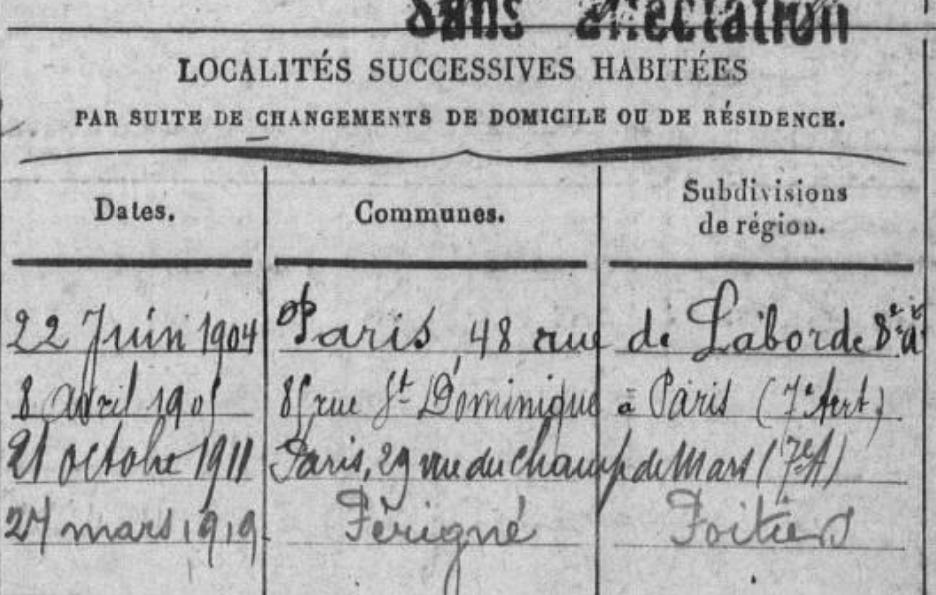 Sans affectation
LOCALITÉS SUCCESSIVES HABITÉES
PAR SUITE DE CHANGEMENTS DE DOMICILE OU DE RÉSIDENCE.
Dates. Communes. Subdivisions de région.
22 Juin 1904 Paris, 48 rue de Laborde 8e a
8 avril 1905 85 rue St Dominique à Paris (7e Arrt)
21 octobre 1911 Paris, 29 rue du Champ de Mars (7e A)
27 mars 1919 Périgné Poitiers